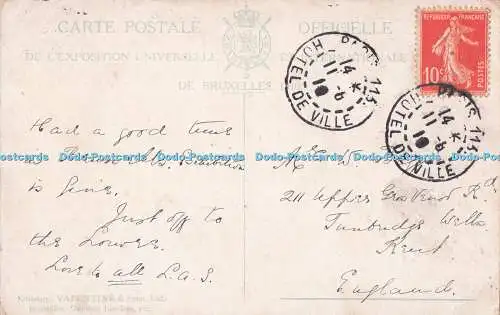 CARTE POSTALE OFFICIELLE
DE L'EXPOSITION UNIVERSELLE
DE BRUXELLES
REPUBLIQUE FRANÇAISE
10c
POSTES
PARIS 113
14
11 - 6
10
HOTEL DE VILLE
PARIS 113
14
11 - 6
10
HOTEL DE VILLE
Had a good time
is fine.
Just off to
the Louvre.
Love to all L.A.S.
211 Upper Grosvenor Rd
Tunbridge Wells
Kent
England
VALENTINE & Sons, Ltd.
Postcards Postcards Postcards Postcards Postcards Postcards